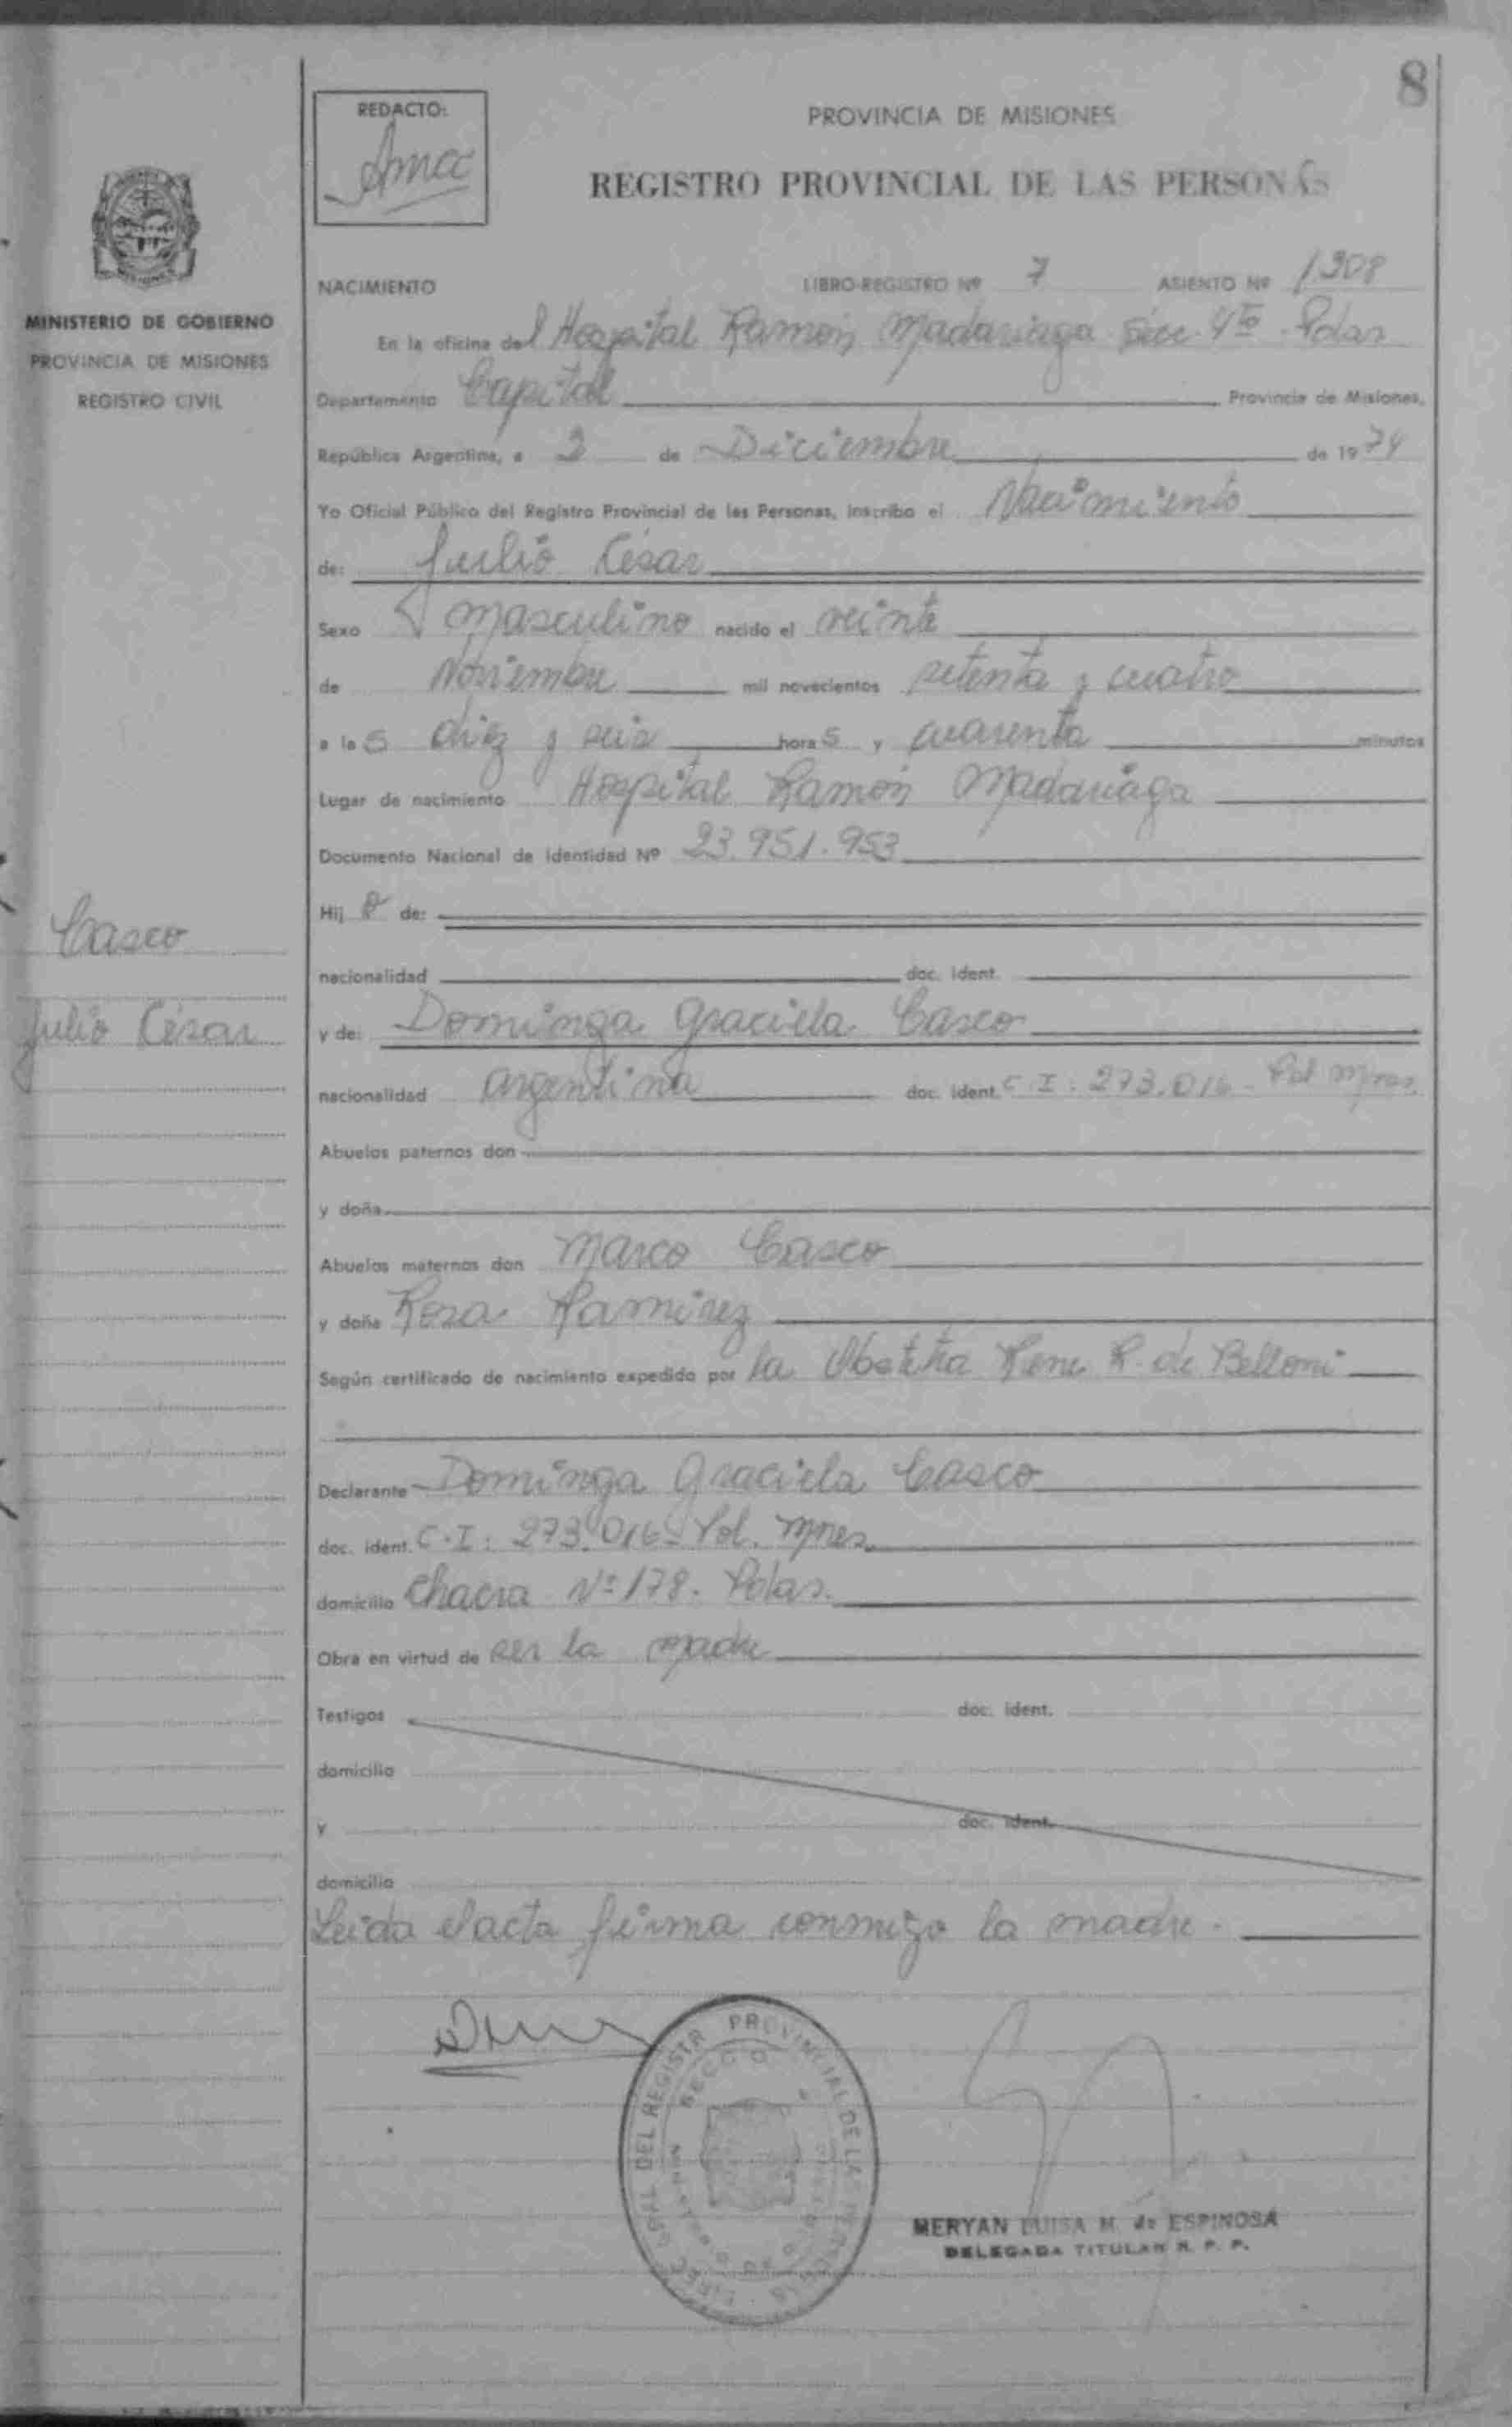 8
REDACTO:
Amcc
PROVINCIA DE MISIONES
REGISTRO PROVINCIAL DE LAS PERSONAS
MINISTERIO DE GOBIERNO
PROVINCIA DE MISIONES
REGISTRO CIVIL
NACIMIENTO LIBRO-REGISTRO Nº 7 ASIENTO Nº 1308
En la oficina del Hospital Ramón Madariaga Secc 4ta Pdas
Departamento Capital Provincia de Misiones,
República Argentina, a 2 de Diciembre de 1974
Yo Oficial Público del Registro Provincial de las Personas, inscribo el Nacimiento
de: Julio César
Sexo masculino nacido el veinte
de Noviembre mil novecientos setenta y cuatro
a las diez y seis horas y cuarenta minutos
Lugar de nacimiento Hospital Ramón Madariaga
Documento Nacional de Identidad Nº 23.951.953
Hijo de:
nacionalidad doc. ident.
Casco
Julio César
y de: Dominga Graciela Casco
nacionalidad argentina doc. ident. C.I: 273.016 - Pol Mnes.
Abuelos paternos don
y doña
Abuelos maternos don Marco Casco
y doña Rosa Ramírez
Según certificado de nacimiento expedido por la Obstetra Rene R. de Belloni
Declarante Dominga Graciela Casco
doc. ident. C.I: 273.016 - Pol. Mnes.
domicilio Chacra Nº 178. Pdas.
Obra en virtud de ser la madre
Testigos doc. ident.
domicilio
y doc. ident.
domicilio
Leida el acta firma conmigo la madre.
DIREC. GRAL. DEL REGISTR PROVINCIAL DE LAS PERSONAS
MERYAN LUISA M. de ESPINOSA
DELEGADA TITULAR R. P. P.